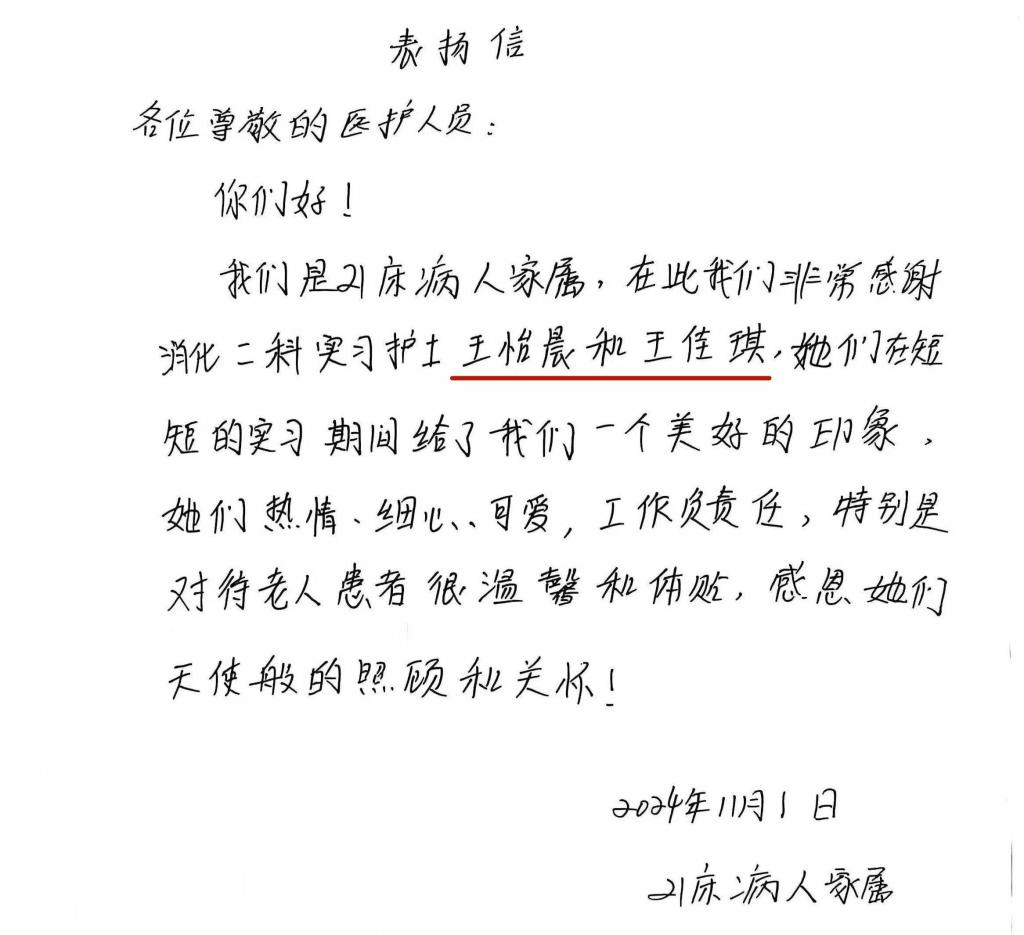 表扬信
各位尊敬的医护人员:
你们好!
我们是21床病人家属,在此我们非常感谢
消化二科实习护士王怡晨和王佳琪,她们在短
短的实习期间给了我们一个美好的印象,
她们热情、细心、可爱,工作负责任,特别是
对待老人患者很温馨和体贴,感恩她们
天使般的照顾和关怀!
2024年11月1日
21床病人家属